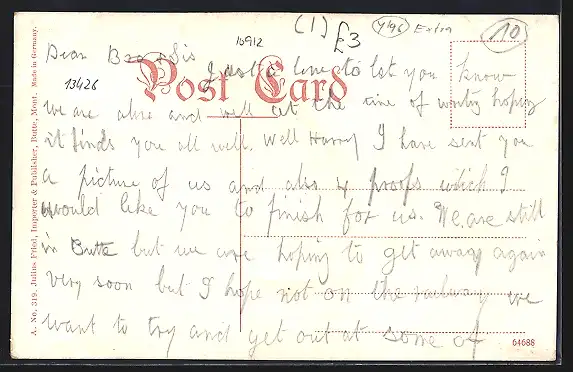 (1) £3 Y196 Extra 10
10912
Dear Bro & Sis Just a line to let you know
13426
Post Card
we are alive and well at the time of writing hoping
it finds you all well. Well Harry I have sent you
a picture of us and also 4 proofs which I
would like you to finish for us. We are still
in Butte but we are hoping to get away again
very soon but I hope not on the railway we
want to try and get out at some of
64688
A. No. 319. Julius Fried, Importer & Publisher, Butte, Mont. Made in Germany.